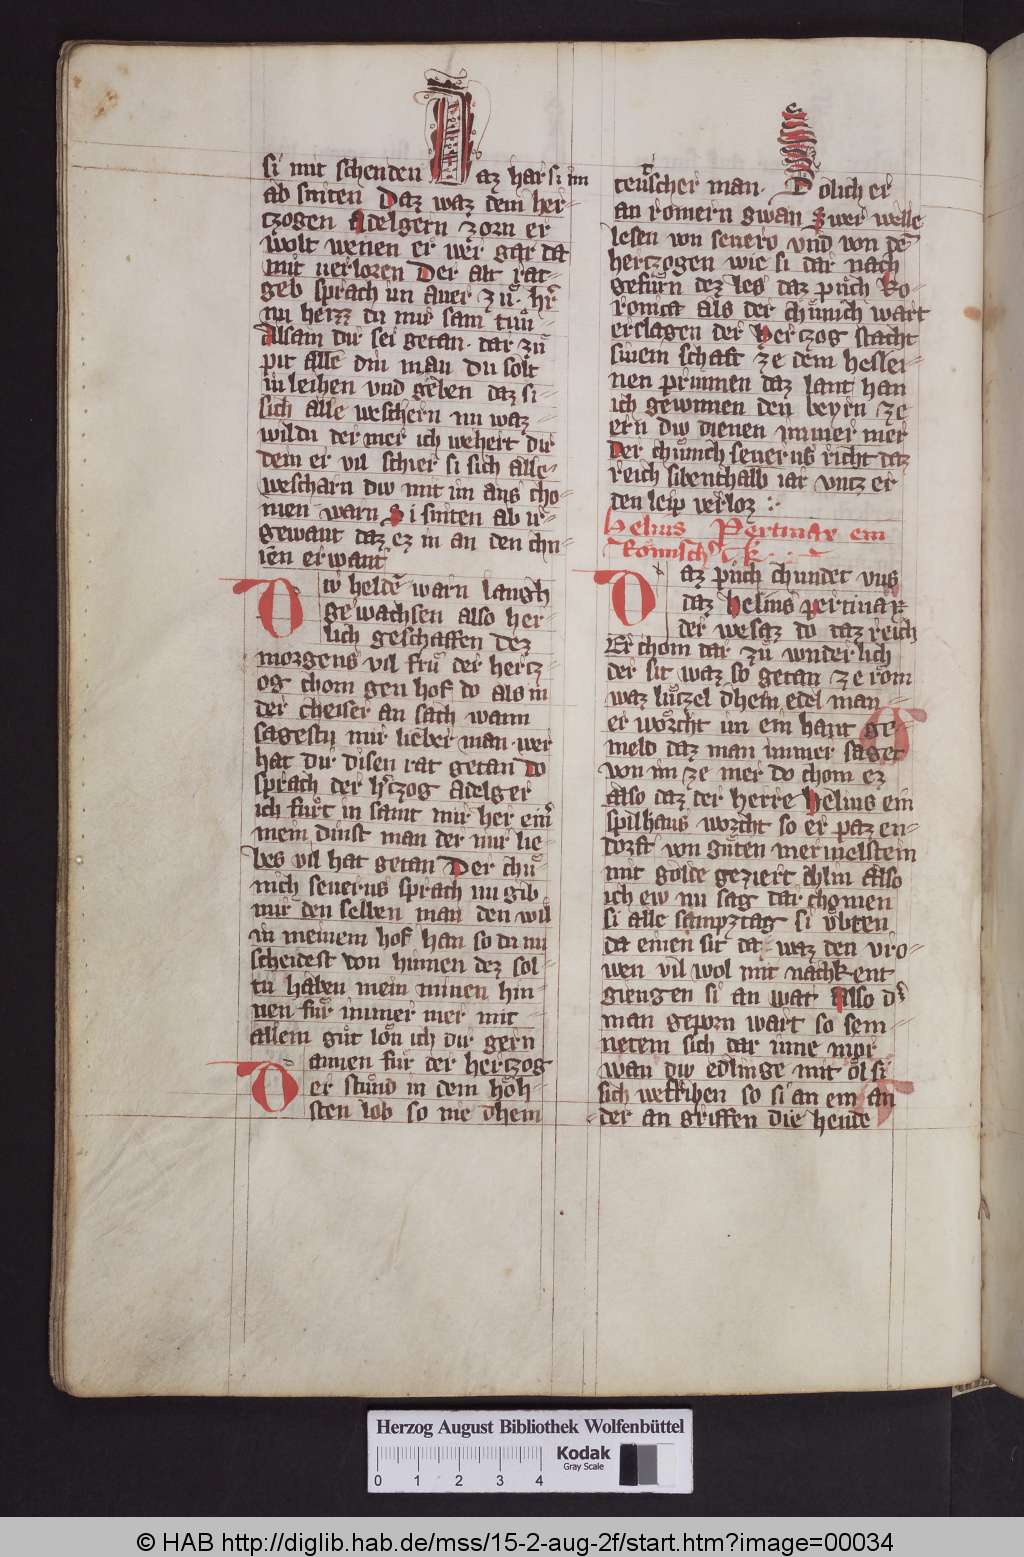 si mit schenden Daz har si im
ab sniten Daz waz dem her-
tzogen Adelgern zorn er
wolt wenen er wër gar da
mit verlorn Der alt rat-
geb sprach im aver zů hr̄
nu herzz du mir sam tuů
Alsam dir sei getan dar zů
pit alle din man Du solt
in leihen vnd geben daz si-
sich alle weschern nu waz-
wildu der mer ich wehert dir
dem er vil schier si sich alle-
wescharn diw mit im aus cho-
men warn Si sniten ab ir-
gewant daz ez in an den chn-
ien erwant
Diw helde warn laugh
gewachsen also her-
lich geschaffen Dez
morgens vil frů der hertz
og chom gen hof do als in
der cheiser an sach wann
sagestu mir lieber man wer
hat dir disen rat getan Do
sprach der h̄tzog Adelger
ich fůrt in samt mir her ein
mein dinst man der mir lie-
bes vil hat getan Der chů-
nich severus sprach nu gib
mir den selben man den wil
in meinem hof han so du nu
scheidest von hinnen dez sol-
tu haben mein minen hin-
nen fůr immer mer mit
allem gůt lôn ich dir gern
Dannen fůr der hertzog
er stůnd in dem hôh-
sten lob so nie dhein
teuscher man Solich er
an romern gwan Swer welle
lesen von severo vnd von de
hertzogen wie si dar nach
gefůrn dez les daz půch Ko-
ronica als der chůnich wart
erslagen der Hertzog stacht
sinem schaft ze dem hesler-
nen prunnen daz lant han
ich gewunnen den beyrn ze
ern diw dienen immer mer
Der chůnich severus richt daz
reich sibenthalb iar vntz er
den leip verloz :·
Helius Pertinax ein
Rômisch k
Daz půch chundet vns
daz Helius pertinax
der wesaz do daz reich
Er chom dar zů wnderlich
der sit waz so getan ze rom
waz lůtzel dhein edel man-
er worcht im ein hant ge-
meld daz man immer saget
von im ze mer do chom ez
Also daz der herre Helius ein
spilhaus worcht so er paz en-
dorft von gůten mermelstein
mit golde geziert Ahlin Also
ich ew nu sag dar chomen
si alle sampztag si ůbten
da einen sit da waz den vro-
wen vil wol mit nachkent
giengen si an wat Also d
man geporn wart so sem-
netem sich dar inne mor
wan diw edlinge mit ôl si
sich wetriben so si an ein an
der an griffen die hende
Herzog August Bibliothek Wolfenbüttel
0 1 2 3 4
Kodak
Gray Scale
© HAB http://diglib.hab.de/mss/15-2-aug-2f/start.htm?image=00034